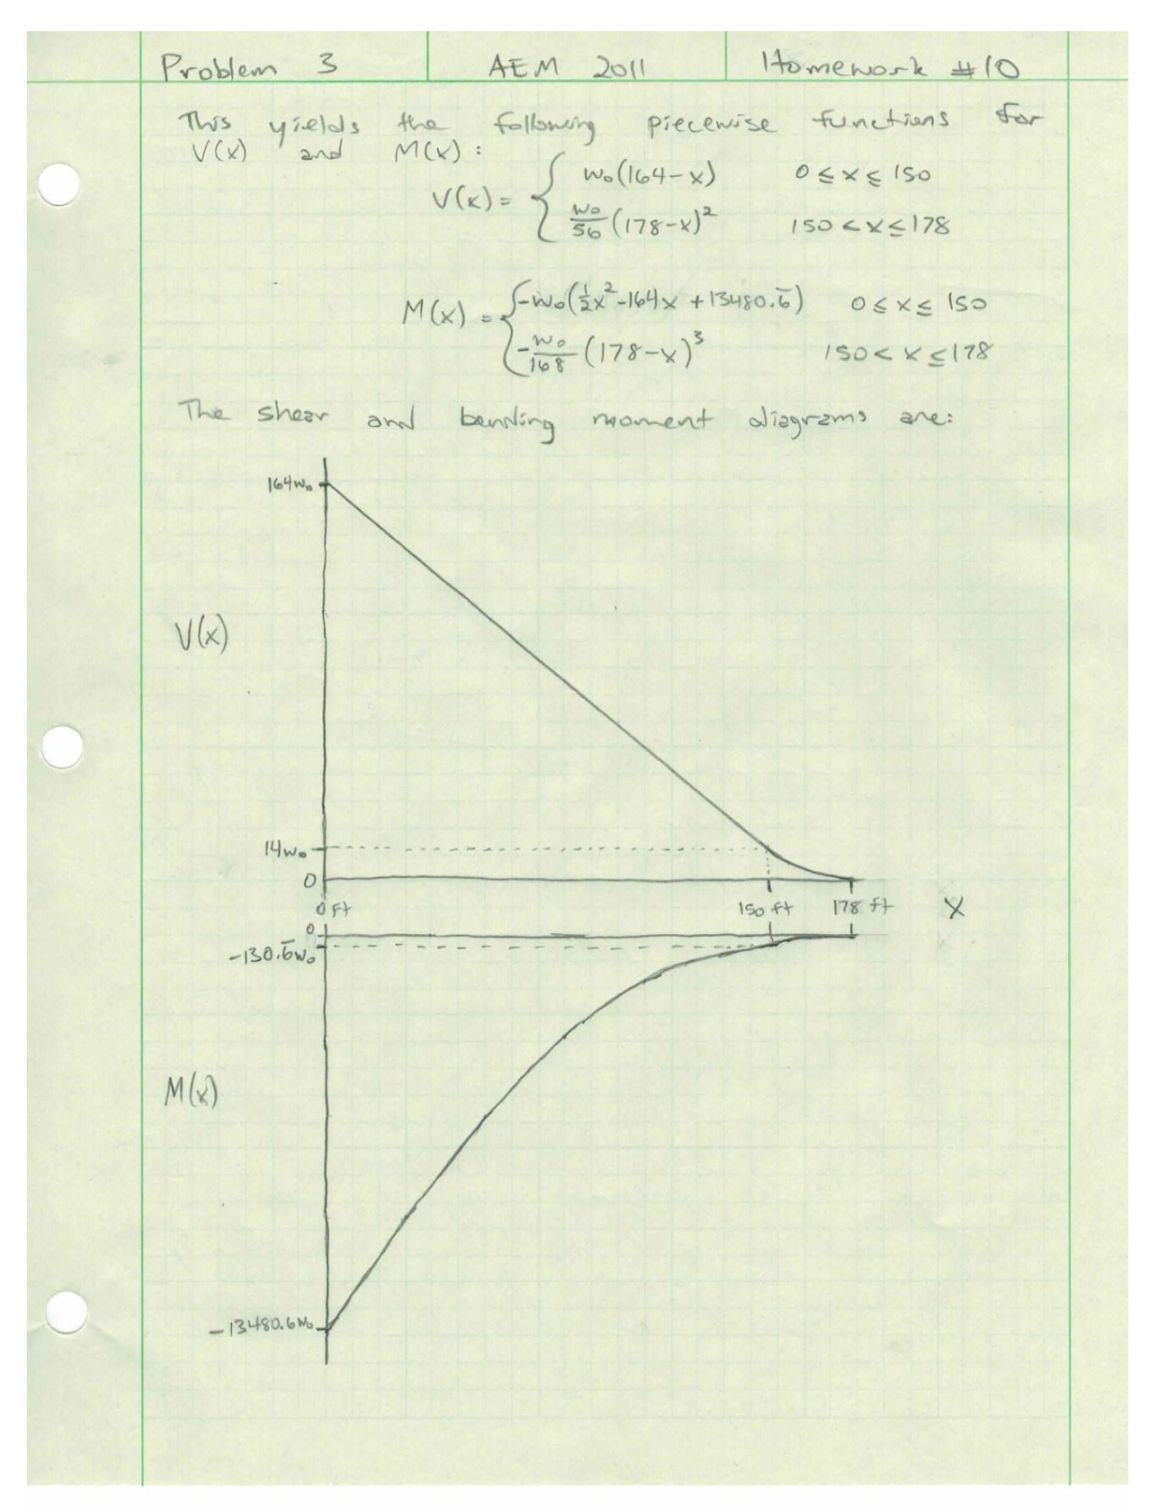 Problem 3 AEM 2011 Homework #10
This yields the following piecewise functions for
V(x) and M(x):
V(x) = { w₀(164-x) 0 ≤ x ≤ 150
w₀/56 (178-x)² 150 < x ≤ 178
M(x) = { -w₀(½x² - 164x + 13480.6̅) 0 ≤ x ≤ 150
-w₀/168 (178-x)³ 150 < x ≤ 178
The shear and bending moment diagrams are:
164w₀
V(x)
14w₀
0
0 ft 150 ft 178 ft X
0
-130.6̅w₀
M(x)
-13480.6w₀